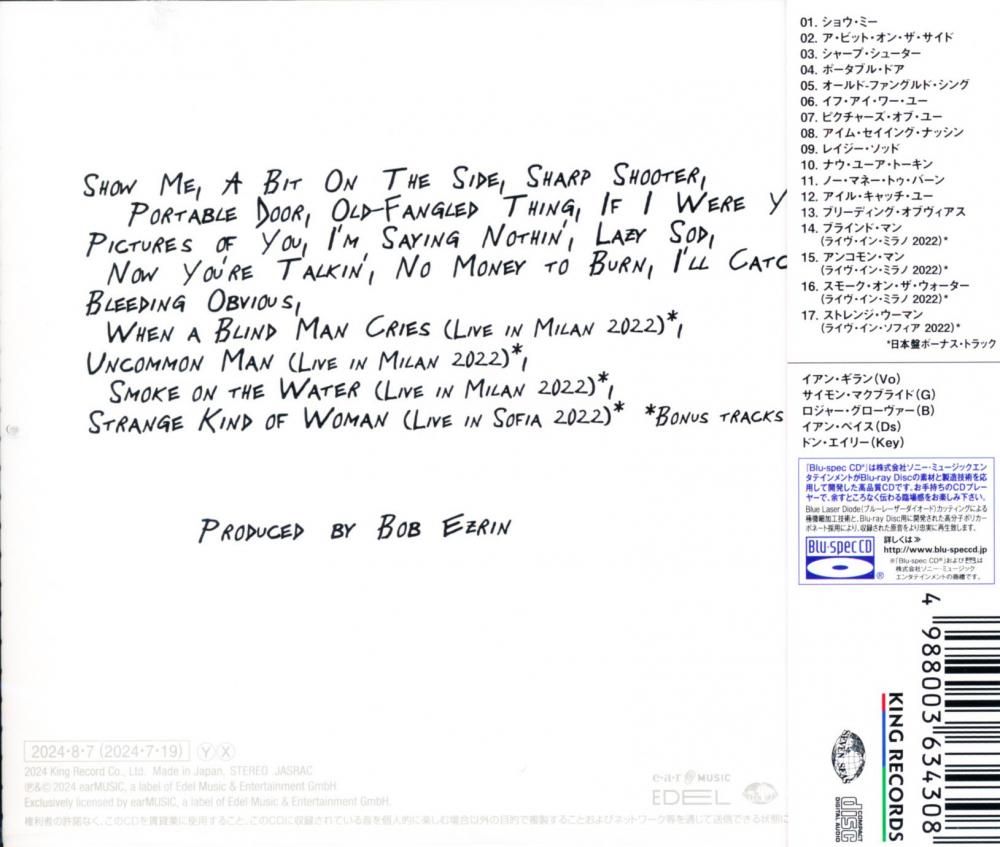 SHOW ME, A BIT ON THE SIDE, SHARP SHOOTER,
PORTABLE DOOR, OLD-FANGLED THING, IF I WERE Y
PICTURES OF YOU, I'M SAYING NOTHIN', LAZY SOD,
NOW YOU'RE TALKIN', NO MONEY TO BURN, I'LL CATC
BLEEDING OBVIOUS,
WHEN A BLIND MAN CRIES (LIVE IN MILAN 2022)*,
UNCOMMON MAN (LIVE IN MILAN 2022)*,
SMOKE ON THE WATER (LIVE IN MILAN 2022)*,
STRANGE KIND OF WOMAN (LIVE IN SOFIA 2022)* *BONUS TRACKS
PRODUCED BY BOB EZRIN
2024・8・7 (2024・7・19) Y X
2024 King Record Co., Ltd. Made in Japan. STEREO JASRAC
℗&© 2024 earMUSIC, a label of Edel Music & Entertainment GmbH.
Exclusively licensed by earMUSIC, a label of Edel Music & Entertainment GmbH.
権利者の許諾なく、このCDを賃貸業に使用すること、このCDに収録されている音を個人的に楽しむ場合以外の目的で複製することおよびネットワーク等を通じて送信できる状態に
e-a-r MUSIC
EDEL
SEVEN SEAS
01. ショウ・ミー
02. ア・ビット・オン・ザ・サイド
03. シャープ・シューター
04. ポータブル・ドア
05. オールド-ファングルド・シング
06. イフ・アイ・ワー・ユー
07. ピクチャーズ・オブ・ユー
08. アイム・セイイング・ナッシン
09. レイジー・ソッド
10. ナウ・ユーア・トーキン
11. ノー・マネー・トゥ・バーン
12. アイル・キャッチ・ユー
13. ブリーディング・オブヴィアス
14. ブラインド・マン
(ライヴ・イン・ミラノ 2022)*
15. アンコモン・マン
(ライヴ・イン・ミラノ 2022)*
16. スモーク・オン・ザ・ウォーター
(ライヴ・イン・ミラノ 2022)*
17. ストレンジ・ウーマン
(ライヴ・イン・ソフィア 2022)*
*日本盤ボーナス・トラック
イアン・ギラン(Vo)
サイモン・マクブライド(G)
ロジャー・グローヴァー(B)
イアン・ペイス(Ds)
ドン・エイリー(Key)
「Blu-spec CD®」は株式会社ソニー・ミュージックエン
タテインメントがBlu-ray Discの素材と製造技術を応
用して開発した高品質CDです。お手持ちのCDプレー
ヤーで、余すところなく伝わる臨場感をお楽しみ下さい。
Blue Laser Diode(ブルーレーザーダイオード)カッティングによる
極微細加工技術と、Blu-ray Disc用に開発された高分子ポリカー
ボネート採用により、収録された原音をより忠実に再生致します。
Blu-spec CD ®
詳しくは≫
http://www.blu-speccd.jp
※「Blu-spec CD®」および は
株式会社ソニー・ミュージック
エンタテインメントの商標です。
4 988003 634308
KING RECORDS
SEVEN SEAS
COMPACT disc DIGITAL AUDIO